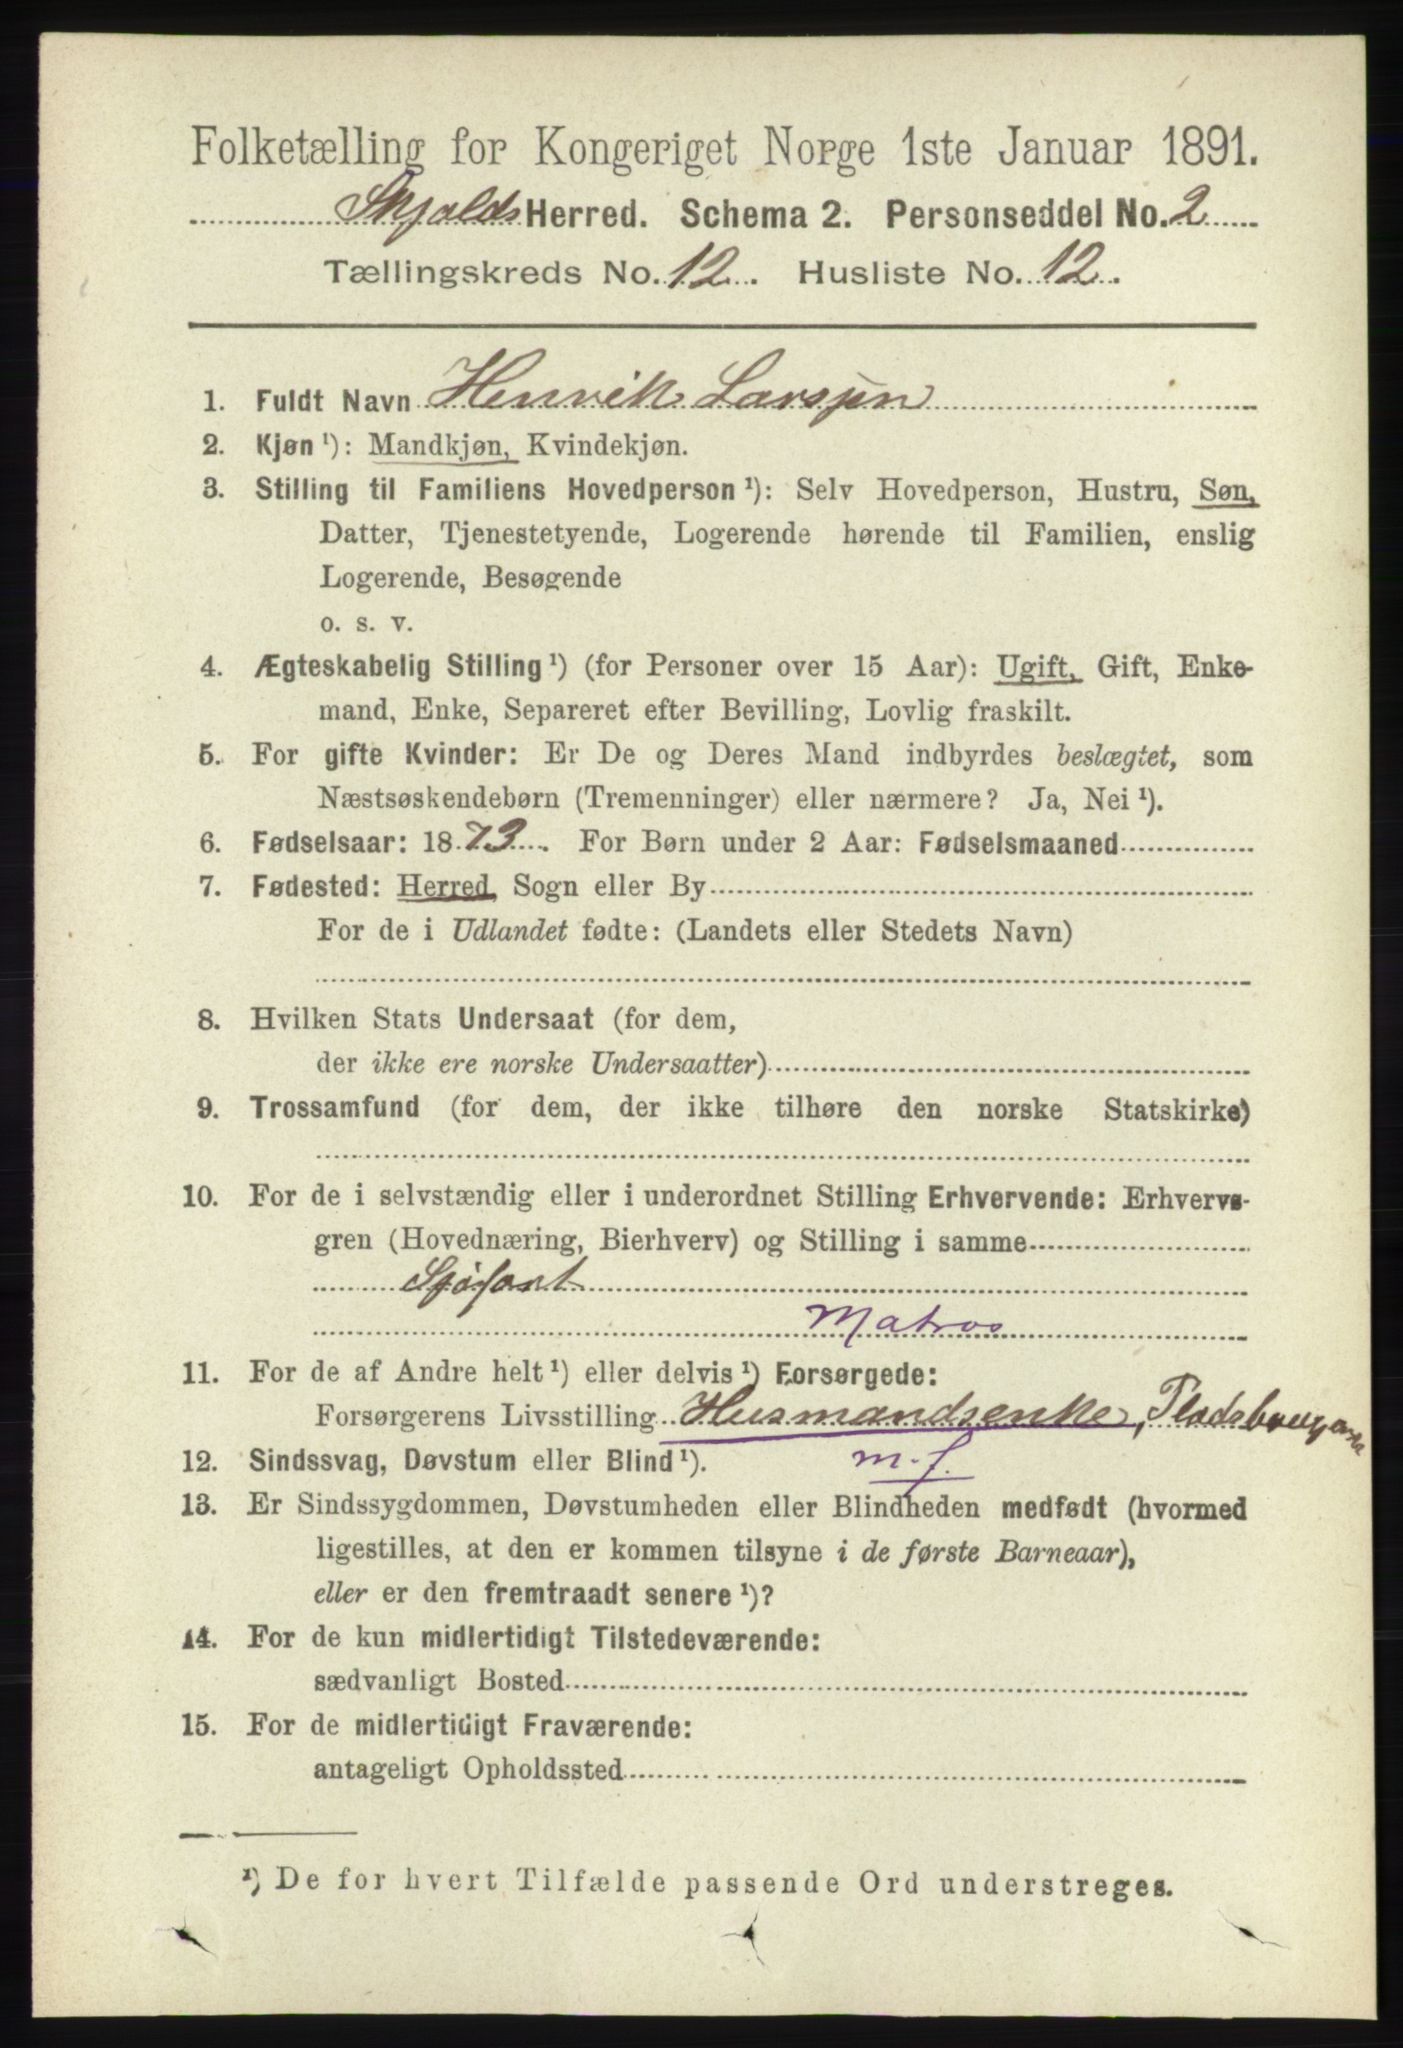 Folketælling for Kongeriget Norge 1ste Januar 1891.
Skjolds Herred. Schema 2. Personseddel No. 2
Tællingskreds No. 12. Husliste No. 12.
1. Fuldt Navn Henrik Larsen
2. Kjøn ¹): Mandkjøn, Kvindekjøn.
3. Stilling til Familiens Hovedperson ¹): Selv Hovedperson, Hustru, Søn,
Datter, Tjenestetyende, Logerende hørende til Familien, enslig
Logerende, Besøgende
o. s. v.
4. Ægteskabelig Stilling ¹) (for Personer over 15 Aar): Ugift, Gift, Enke-
mand, Enke, Separeret efter Bevilling, Lovlig fraskilt.
5. For gifte Kvinder: Er De og Deres Mand indbyrdes beslægtet, som
Næstsøskendebørn (Tremenninger) eller nærmere? Ja, Nei ¹).
6. Fødselsaar: 1873. For Børn under 2 Aar: Fødselsmaaned
7. Fødested: Herred, Sogn eller By
For de i Udlandet fødte: (Landets eller Stedets Navn)
8. Hvilken Stats Undersaat (for dem,
der ikke ere norske Undersaatter)
9. Trossamfund (for dem, der ikke tilhøre den norske Statskirke)
10. For de i selvstændig eller i underordnet Stilling Erhvervende: Erhvervs-
gren (Hovednæring, Bierhverv) og Stilling i samme
Sjøfart
Matros
11. For de af Andre helt ¹) eller delvis ¹) Forsørgede:
Forsørgerens Livsstilling Husmandsenke,
m. j.
12. Sindssvag, Døvstum eller Blind ¹).
13. Er Sindssygdommen, Døvstumheden eller Blindheden medfødt (hvormed
ligestilles, at den er kommen tilsyne i de første Barneaar),
eller er den fremtraadt senere ¹)?
14. For de kun midlertidigt Tilstedeværende:
sædvanligt Bosted
15. For de midlertidigt Fraværende:
antageligt Opholdssted
¹) De for hvert Tilfælde passende Ord understreges.